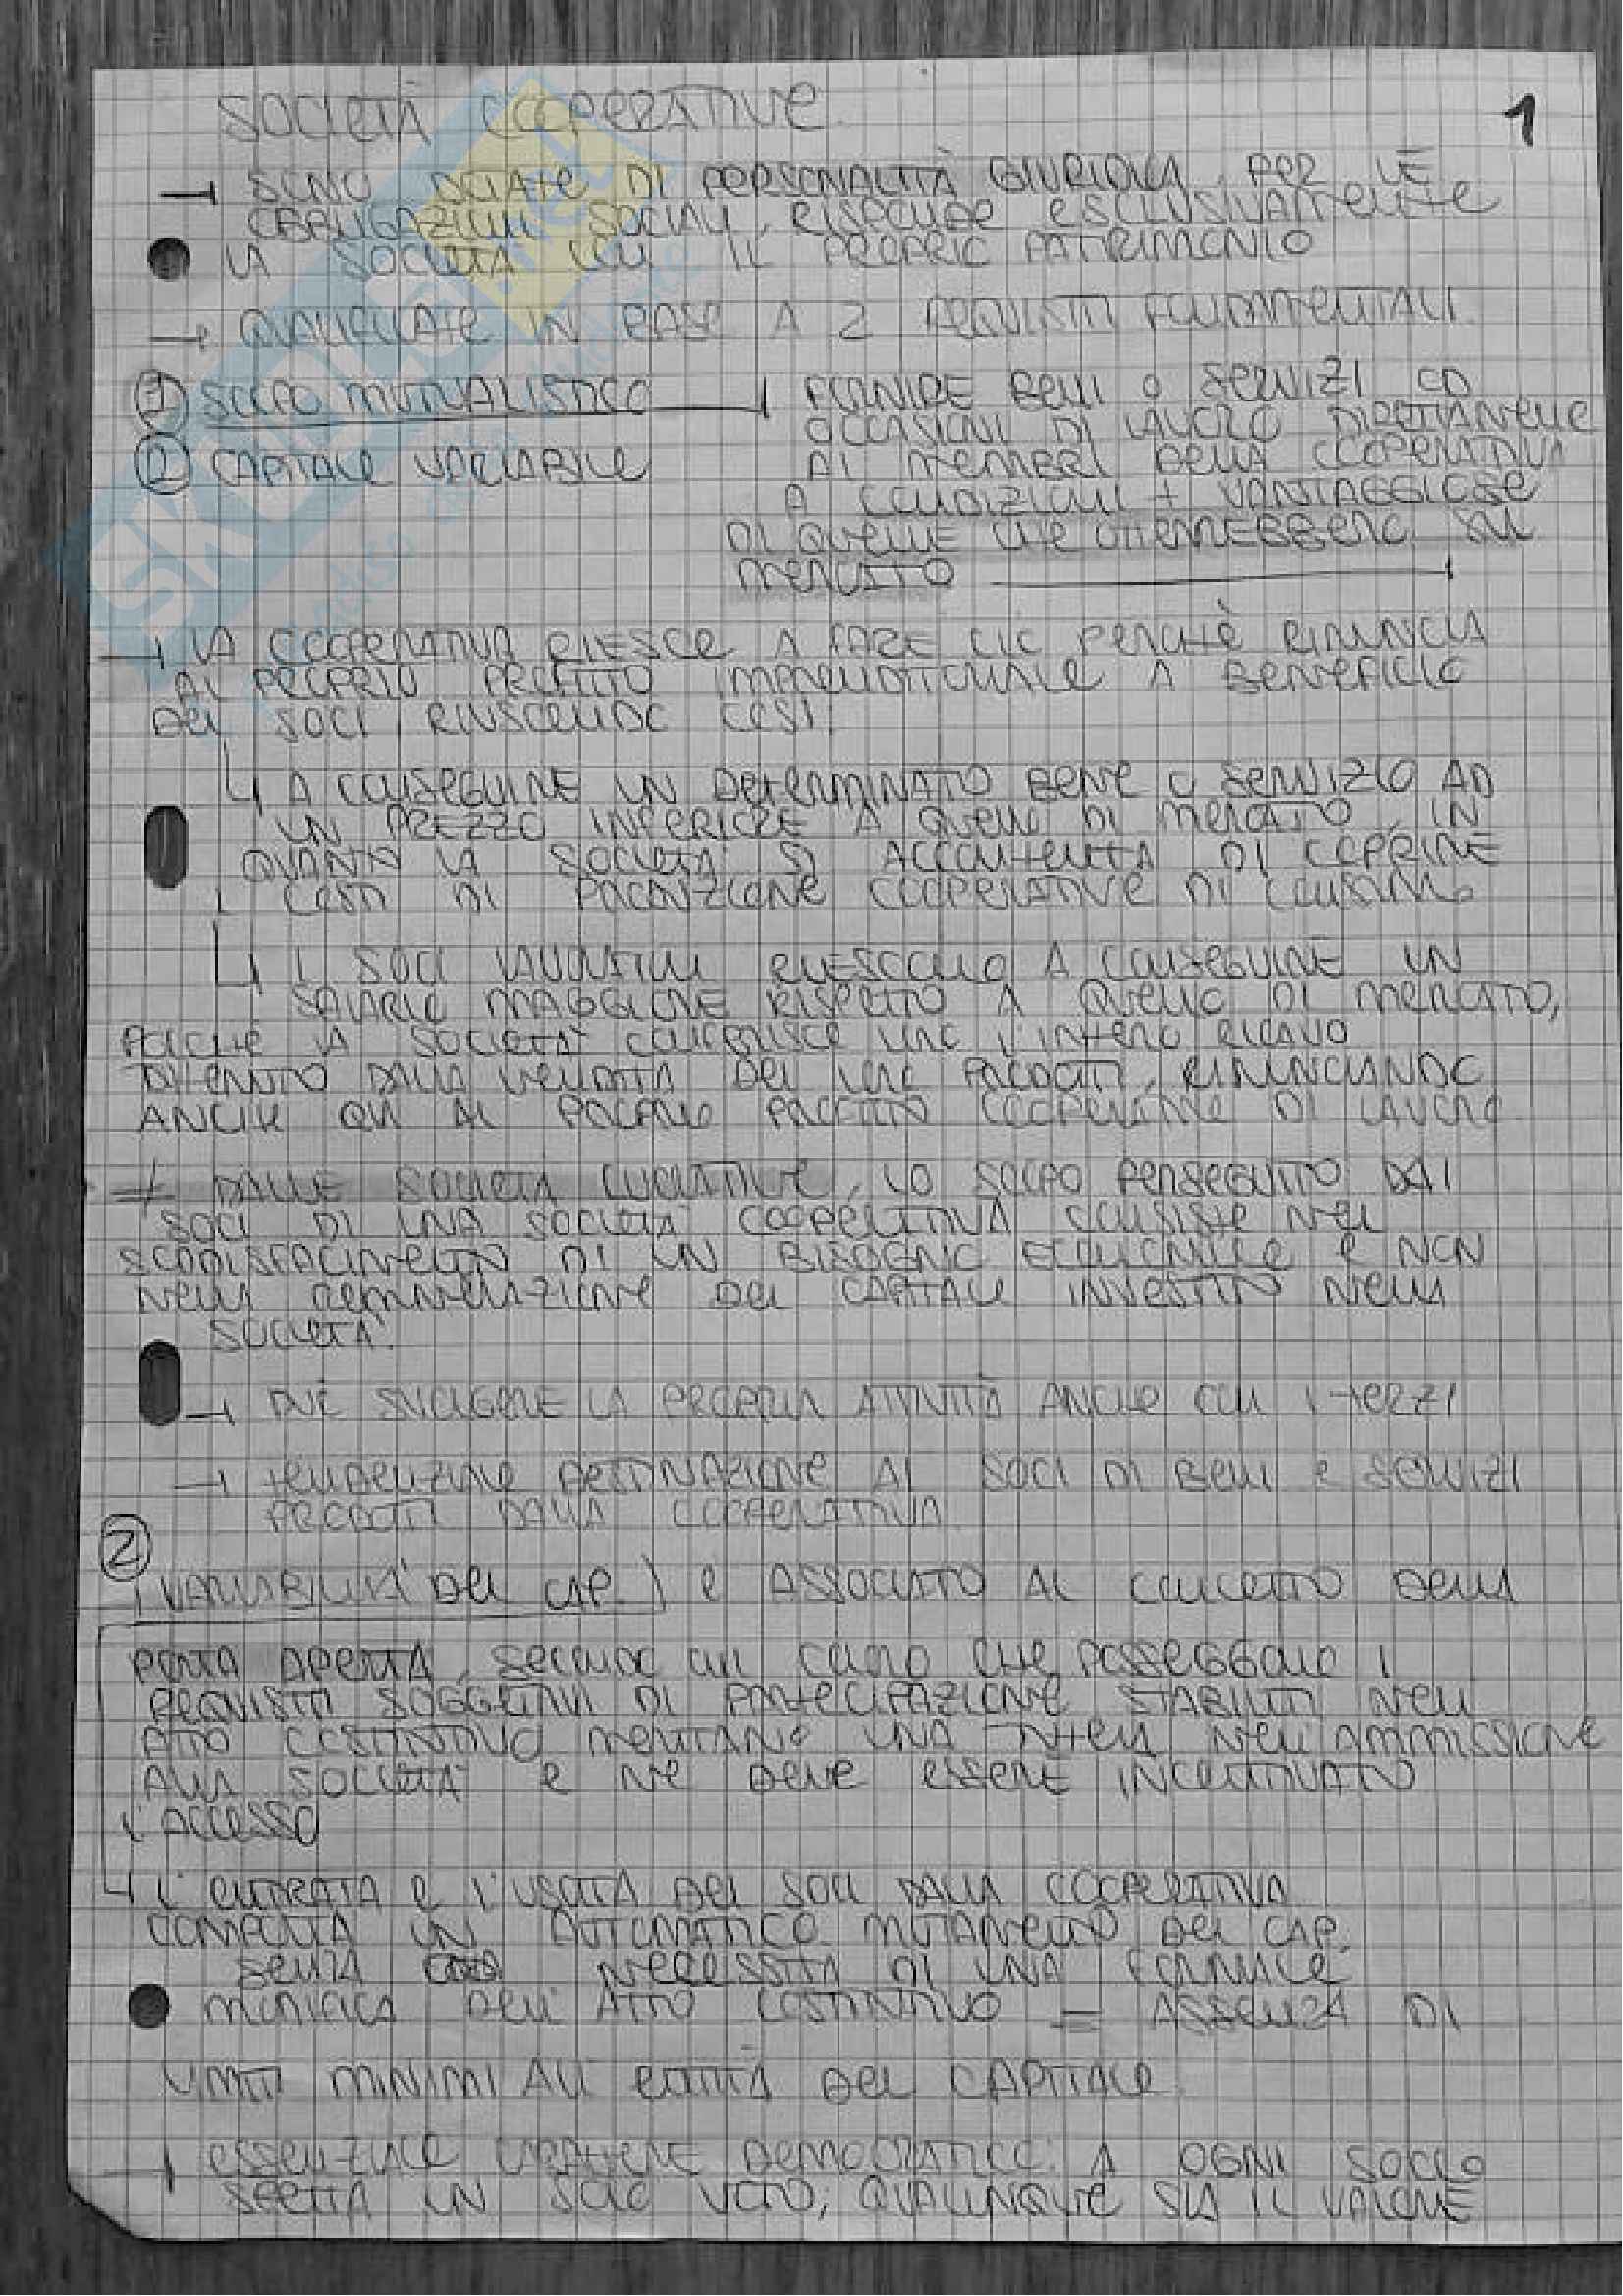 SOCIETÀ COOPERATIVE.
1
→ SONO DOTATE DI PERSONALITÀ GIURIDICA, PER LE
OBBLIGAZIONI SOCIALI, RISPONDE ESCLUSIVAMENTE
LA SOCIETÀ CON IL PROPRIO PATRIMONIO
→ QUALIFICATE IN BASE A 2 REQUISITI FONDAMENTALI.
① SCOPO MUTUALISTICO → FORNIRE BENI O SERVIZI OD
OCCASIONI DI LAVORO DIRETTAMENTE
② CAPITALE VARIABILE AI MEMBRI DELLA COOPERATIVA
A CONDIZIONI + VANTAGGIOSE
DI QUELLE CHE OTTERREBBERO SUL
MERCATO
→ LA COOPERATIVA RIESCE A FARE CIÒ PERCHÈ RINUNCIA
AL PROPRIO PROFITTO IMPRENDITORIALE A BENEFICIO
DEI SOCI, RIUSCENDO COSÌ:
↳ A CONSEGUIRE UN DETERMINATO BENE O SERVIZIO AD
UN PREZZO INFERIORE A QUELLO DI MERCATO, IN
QUANTO LA SOCIETÀ SI ACCONTENTA DI COPRIRE
I COSTI DI PRODUZIONE COOPERATIVE DI CONSUMO
↳ I SOCI LAVORATORI RIESCONO A CONSEGUIRE UN
SALARIO MAGGIORE RISPETTO A QUELLO DI MERCATO,
POICHÉ LA SOCIETÀ CONFERISCE LORO L'INTERO RICAVO
OTTENUTO DALLA VENDITA DEI LORO PRODOTTI, RINUNCIANDO
ANCHE QUI AL PROPRIO PROFITTO COOPERATIVE DI LAVORO
≠ DALLE SOCIETÀ LUCRATIVE, LO SCOPO PERSEGUITO DAI
SOCI DI UNA SOCIETÀ COOPERATIVA CONSISTE NEL
SODDISFACIMENTO DI UN BISOGNO ECONOMICO E NON
NELLA REMUNERAZIONE DEL CAPITALE INVESTITO NELLA
SOCIETÀ.
→ PUÒ SVOLGERE LA PROPRIA ATTIVITÀ ANCHE CON I TERZI
→ TENDENZIALE DESTINAZIONE AI SOCI DI BENI E SERVIZI
PRODOTTI DALLA COOPERATIVA
②
VARIABILITÀ DEL CAP. È ASSOCIATO AL CONCETTO DELLA
PORTA APERTA, SECONDO CUI COLORO CHE POSSEGGONO I
REQUISITI SOGGETTIVI DI PARTECIPAZIONE STABILITI NELL
ATTO COSTITUTIVO MERITANO UNA TUTELA NELL'AMMISSIONE
ALLA SOCIETÀ E NE DEVE ESSERE INCENTIVATO
L'ACCESSO
↳ L'ENTRATA E L'USCITA DEI SOCI DALLA COOPERATIVA
COMPORTA UN AUTOMATICO MUTAMENTO DEL CAP.
SENZA NECESSITÀ DI UNA FORMALE
MODIFICA DELL'ATTO COSTITUTIVO = ASSENZA DI
LIMITI MINIMI ALL'ENTITÀ DEL CAPITALE
→ ESSENZIALE CARATTERE DEMOCRATICO: A OGNI SOCIO
SPETTA UN SOLO VOTO, QUALUNQUE SIA IL VALORE